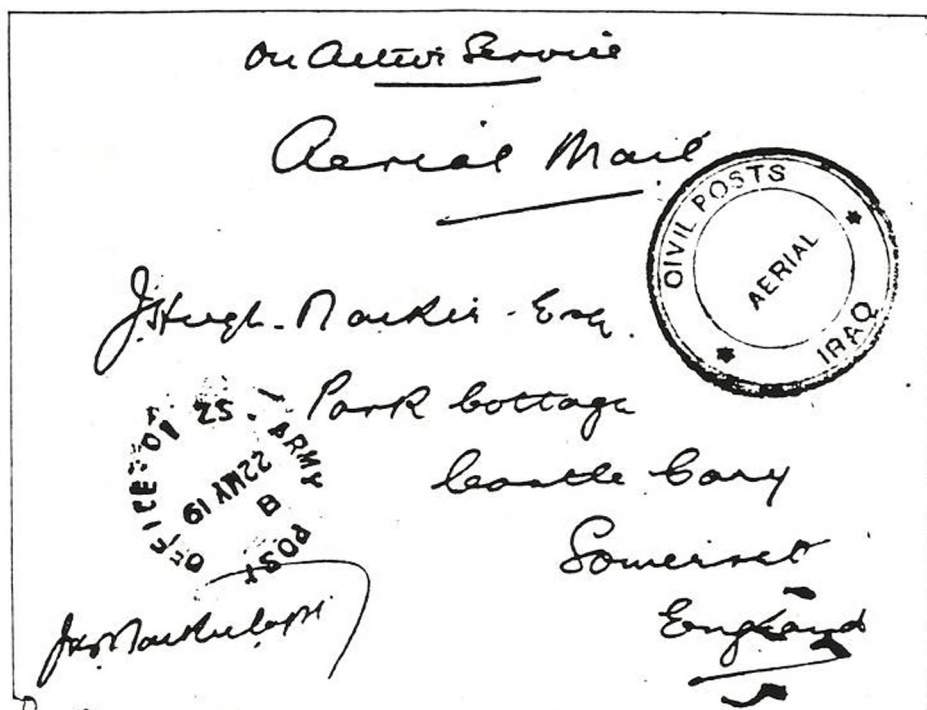 On Active Service
Aerial Mail
CIVIL POSTS
AERIAL
IRAQ
J. Hugh Mackie Esq.
Park Cottage
Castle Cary
Somerset
England
ARMY POST OFFICE
B
22 MY 19